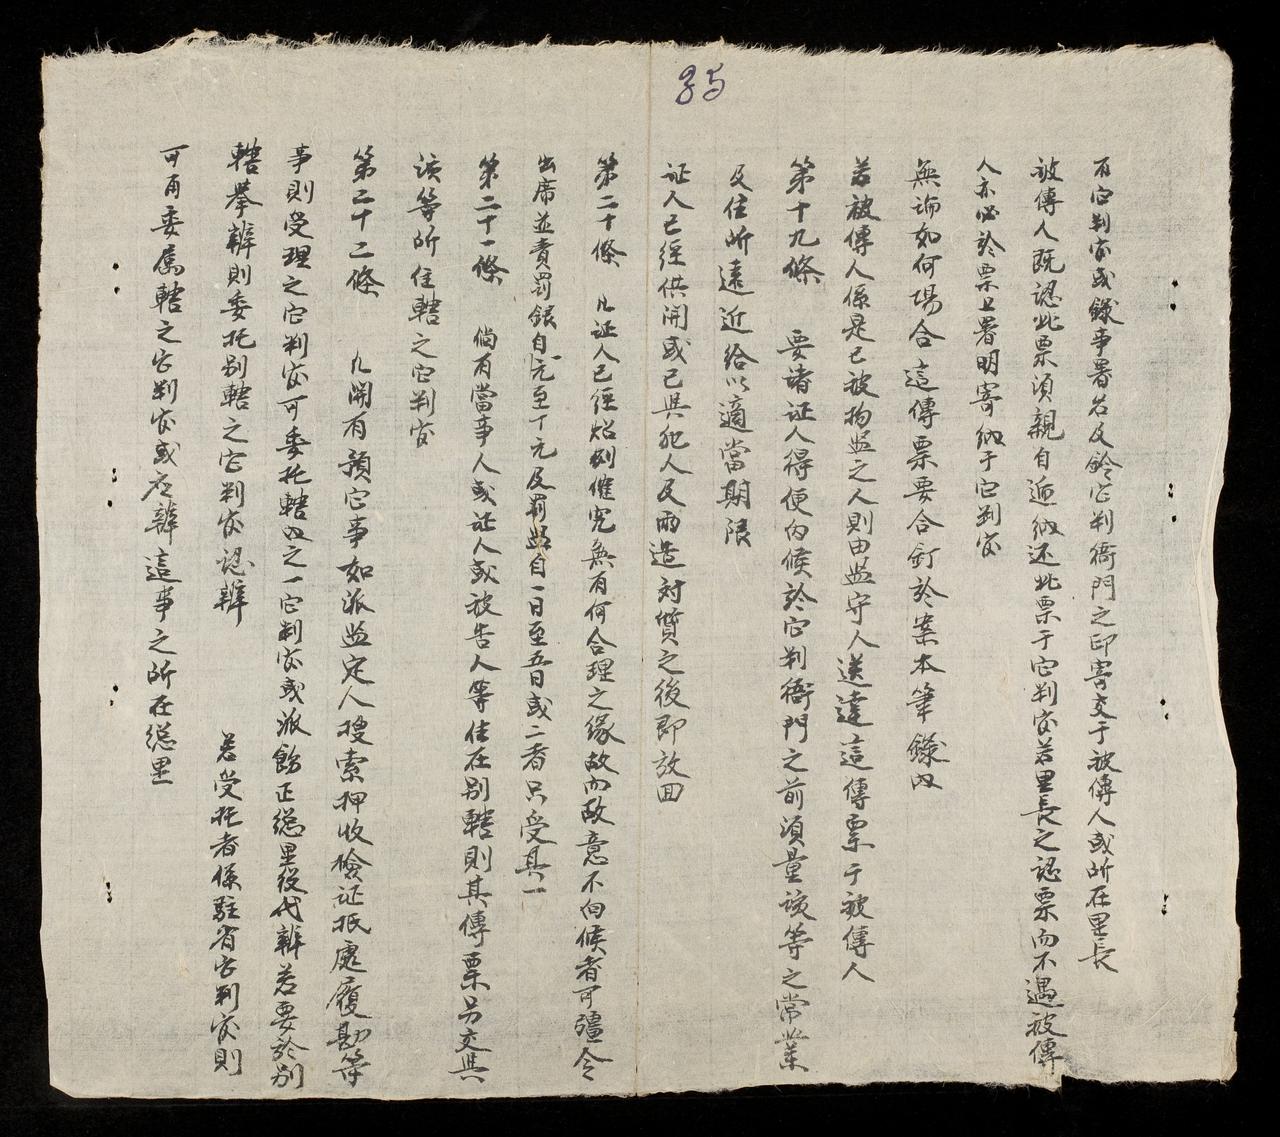 35
有宅判官或錄事署名及鈐宅判衙門之印寄交于被傳人或所在里長
被傳人既認此票須親自遞納还此票于宅判官若里長之認票而不遇被傳
人亦必於票上署明寄納于宅判官
無論如何場合這傳票要合釘於案本筆錄內
若被傳人係是已被拘监之人則由监守人送達這傳票于被傳人
第十九條 要诸证人得便向候於宅判衙門之前須量該等之常業
及住所遠近给以適當期限
证人已經供開或已與犯人及両造対質之後即放回
第二十條 凡证人已經炤例催究無有何合理之缘故而故意不向候者可彊令
出席並責罰銀自元至十元及罰监自一日至五日或二者只受其一
第二十一條 倘有當事人或证人或被告人等住在别轄則其傳票另交與
该等所住轄之宅判官
第二十二條 凡開有預宅事如派监定人搜索押收檢证抵處履勘等
事則受理之宅判官可委托轄內之一宅判官或派飭正總里役代辨若要於别
轄舉辨則委托别轄之宅判官認辨 若受托者係駐省宅判官則
可再委属轄之宅判官或应辨這事之所在總里